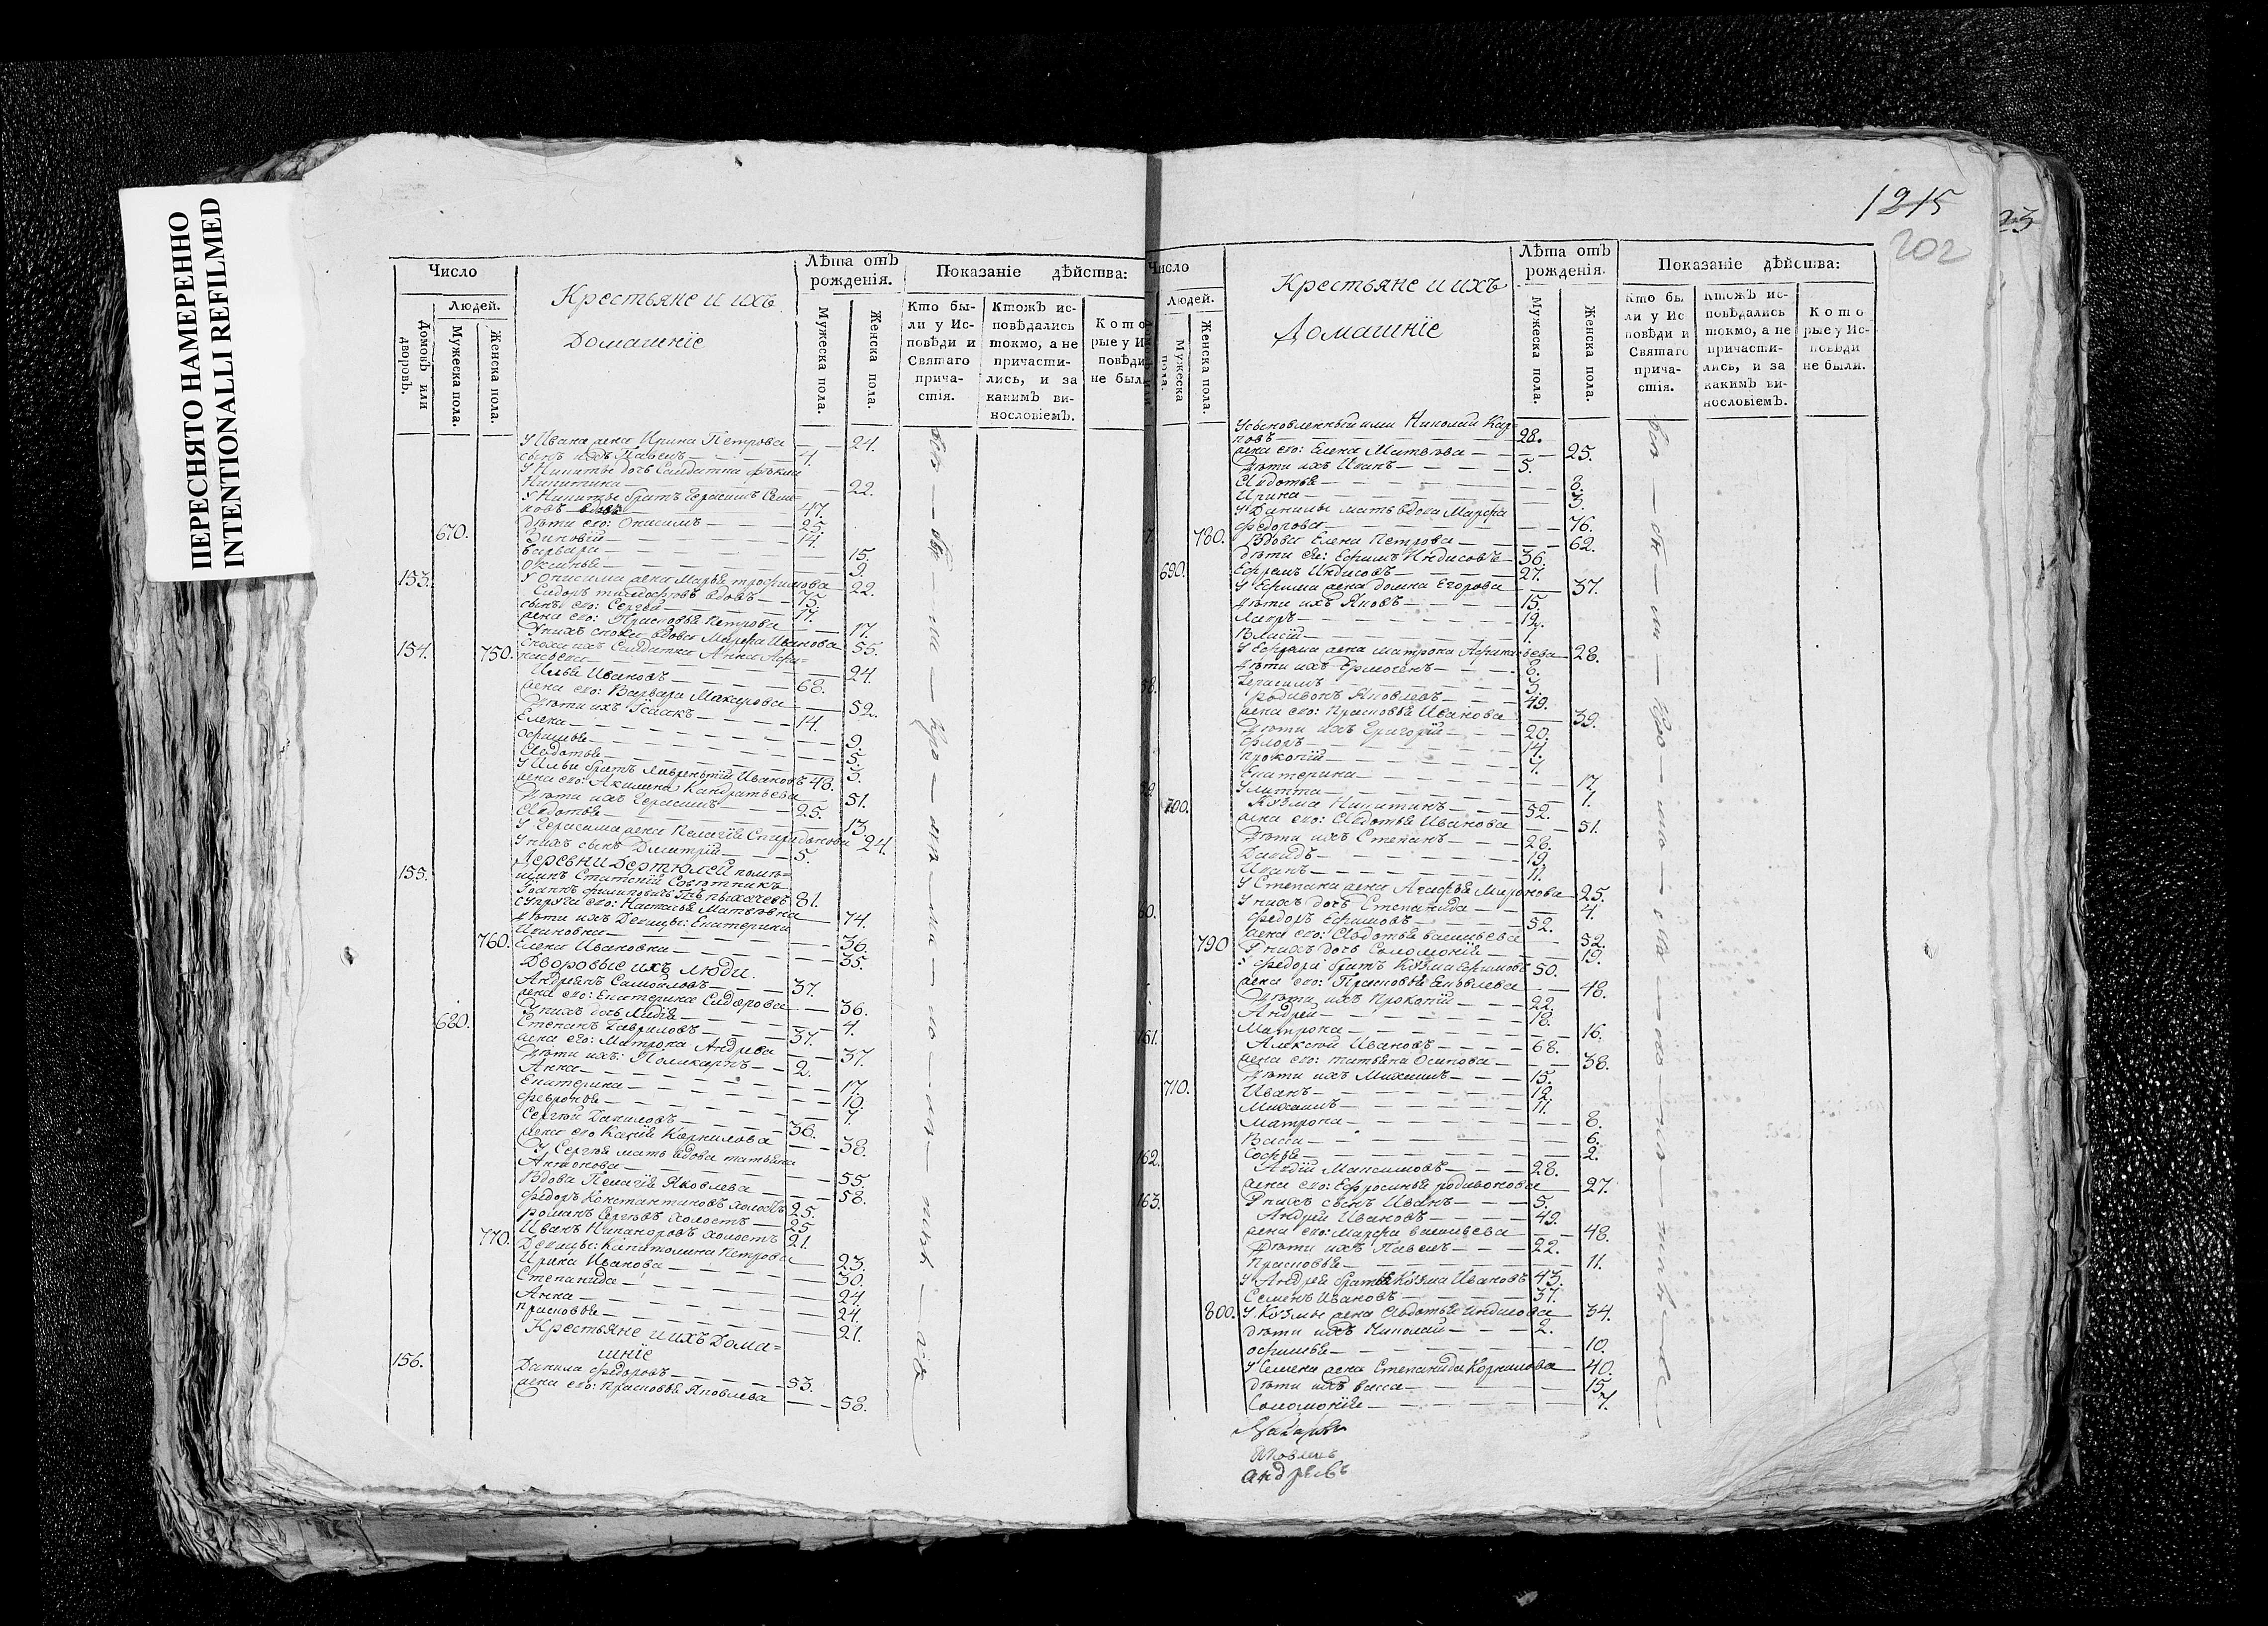 ПЕРЕСНЯТО НАМЕРЕННО
INTENTIONALLI REFILMED
Число
Людей.
Домовъ или дворовъ.
Мужеска пола.
Женска пола.
Крестьяне и ихъ
Домашніе
Лѣта отъ рожденія.
Мужеска пола.
Женска пола.
Показаніе дѣйства:
Кто были у Исповѣди и Святаго причастія.
Ктожъ исповѣдались токмо, а не причастились, и за какимъ винословіемъ.
Которые у Исповѣди не были
У Ивана жена Ирина Петрова — 24.
сынъ ихъ Павелъ — 4.
У Никиты дочь Салдатка Фекла
Никитина — 22.
У Никиты братъ Герасимъ Семе=
новъ вдовъ — 47.
дѣти его: Онисимъ — 25.
670. Зиновій — 14.
Варвара — 15.
Оксинья — 9.
У Онисима жена Марья трофимова — 22.
153. Сидоръ тимофѣевъ вдовъ — 75.
сынъ его: Сергѣй — 17.
жена его: Прасковья Петрова — 17.
У нихъ сноха вдова Марфа Иванова 55.
750. сноха ихъ Салдатка Анна Афа=
насьева — 24.
154. Илья Ивановъ — 68.
жена его: Варвара Макарова — 52.
Дѣти ихъ Ісаакъ — 14.
Елена — 9.
Офимья — 5.
Авдотья — 3.
У Ильи братъ Лаврентій Ивановъ 48.
жена его: Акилина Кандратьева 51.
Дѣти ихъ Герасимъ — 25.
Авдотья — 13.
У Герасима жена Пелагія Спиридонова 24.
У нихъ сынъ Дмитрій — 5.
Деревни Бертюлей помѣ=
155. щикъ Статскій Совѣтникъ
Іоаннъ филиповичь Пыхачевъ 81.
супруга его: Настасья Матвѣевна 74.
дѣти ихъ Девицы: Екатерина
Ивановна — 36.
760. Елена Ивановна — 35.
Дворовые ихъ люди.
Андреянъ Самойловъ — 37.
жена его: Екатерина Сидорова — 36.
У нихъ дочь Лидія — 4.
680. Степанъ Гавриловъ — 37.
жена его: Матрона Андрева — 37.
Дѣти ихъ: Поликарпъ — 2.
Анна — 17.
Екатерина — 10.
Февронья — 7.
Сергѣй Даниловъ — 36.
жена его Корнилова — 38.
У Сергѣя мать вдова татьяна
Антонова — 55.
Вдова Пелагія Яковлева — 58.
Федоръ Константиновъ холостъ 25.
романъ Сергѣевъ холостъ — 25
Иванъ Никаноровъ холостъ 21.
770. Девицы: Капитолина Петрова 23.
Ирина Иванова — 30.
Степанида — 24.
Анна — 24.
Прасковья — 21.
Крестьяне и ихъ Дома=
шніе
156. Данила Федоровъ — 53.
жена его: Прасковья Яковлева — 58.
1215
202
23
Число
Людей.
Мужеска пола.
Женска пола.
Крестьяне и ихъ
Домашніе
Лѣта отъ рожденія.
Мужеска пола.
Женска пола.
Показаніе дѣйства:
Кто были у Исповѣди и Святаго причастія.
Ктожъ исповѣдались токмо, а не причастились, и за какимъ винословіемъ.
Которые у Исповѣди не были.
Усыновленный ими Николай Кар=
повъ — 28.
жена его: Елена Матвѣва — 25.
дѣти ихъ Иванъ — 5.
Авдотья — 8.
Ирина — 3.
У Данилы мать вдова Марфа
Федорова — 76.
780. Вдова Елена Петрова — 62.
дѣти ее: Ефимъ Индисовъ — 36.
690. Ефремъ Индисовъ — 27.
У Ефима жена домна Егорова — 37.
дѣти ихъ Яковъ — 15.
Лавръ — 12.
Власій — 1.
У Ефрема жена матрона Афанасьева 28.
дѣти ихъ Ермогенъ — 8.
Герасимъ — 3.
58. Родивонъ Яковлевъ — 49.
жена его: Прасковья Иванова — 39.
Дѣти ихъ Григорій — 20.
Флоръ — 14.
Прокопій — 7.
Екатерина — 17.
Улитта — 7.
59. 700. Кузма Никитинъ — 52.
жена его: Авдотья Иванова — 51.
Дѣти ихъ Степанъ — 28.
Давидъ — 19.
Иванъ — 11.
У Степана жена Агафья Миронова 25.
У нихъ дочь Степанида — 4.
60. Федоръ Ефимовъ — 52.
жена его: Авдотья васильева 52.
790 У нихъ дочь Соломонія — 19.
У Федора братъ Кузма Ефимовъ 50.
жена его: Прасковья Яковлева 48.
Дѣти ихъ Прокопій — 22.
Андрей — 18.
Матрона — 16.
161. Алексѣй Ивановъ — 68.
жена его: татьяна Осипова — 38.
Дѣти ихъ Михаилъ — 15.
710. Иванъ — 12.
Михаилъ — 11.
Матрона — 8.
Васса — 6.
Софья — 2.
162. Авдій Максимовъ — 28.
жена его: Ефросинья родивонова 27.
У нихъ сынъ Иванъ — 5.
163. Андрей Ивановъ — 49.
жена его: Марфа васильева — 48.
Дѣти ихъ Павелъ — 22.
Прасковья — 11.
У Андрея братья Кузма Ивановъ 43.
Семенъ Ивановъ — 37.
800. У Кузмы жена Авдотья индисова 34.
дѣти ихъ Николай — 2.
Офимья — 10.
У Семена жена Степанида Корнилова 40.
дѣти ихъ васса — 15.
Соломонія — 7.
Яковлевъ
Андреевъ